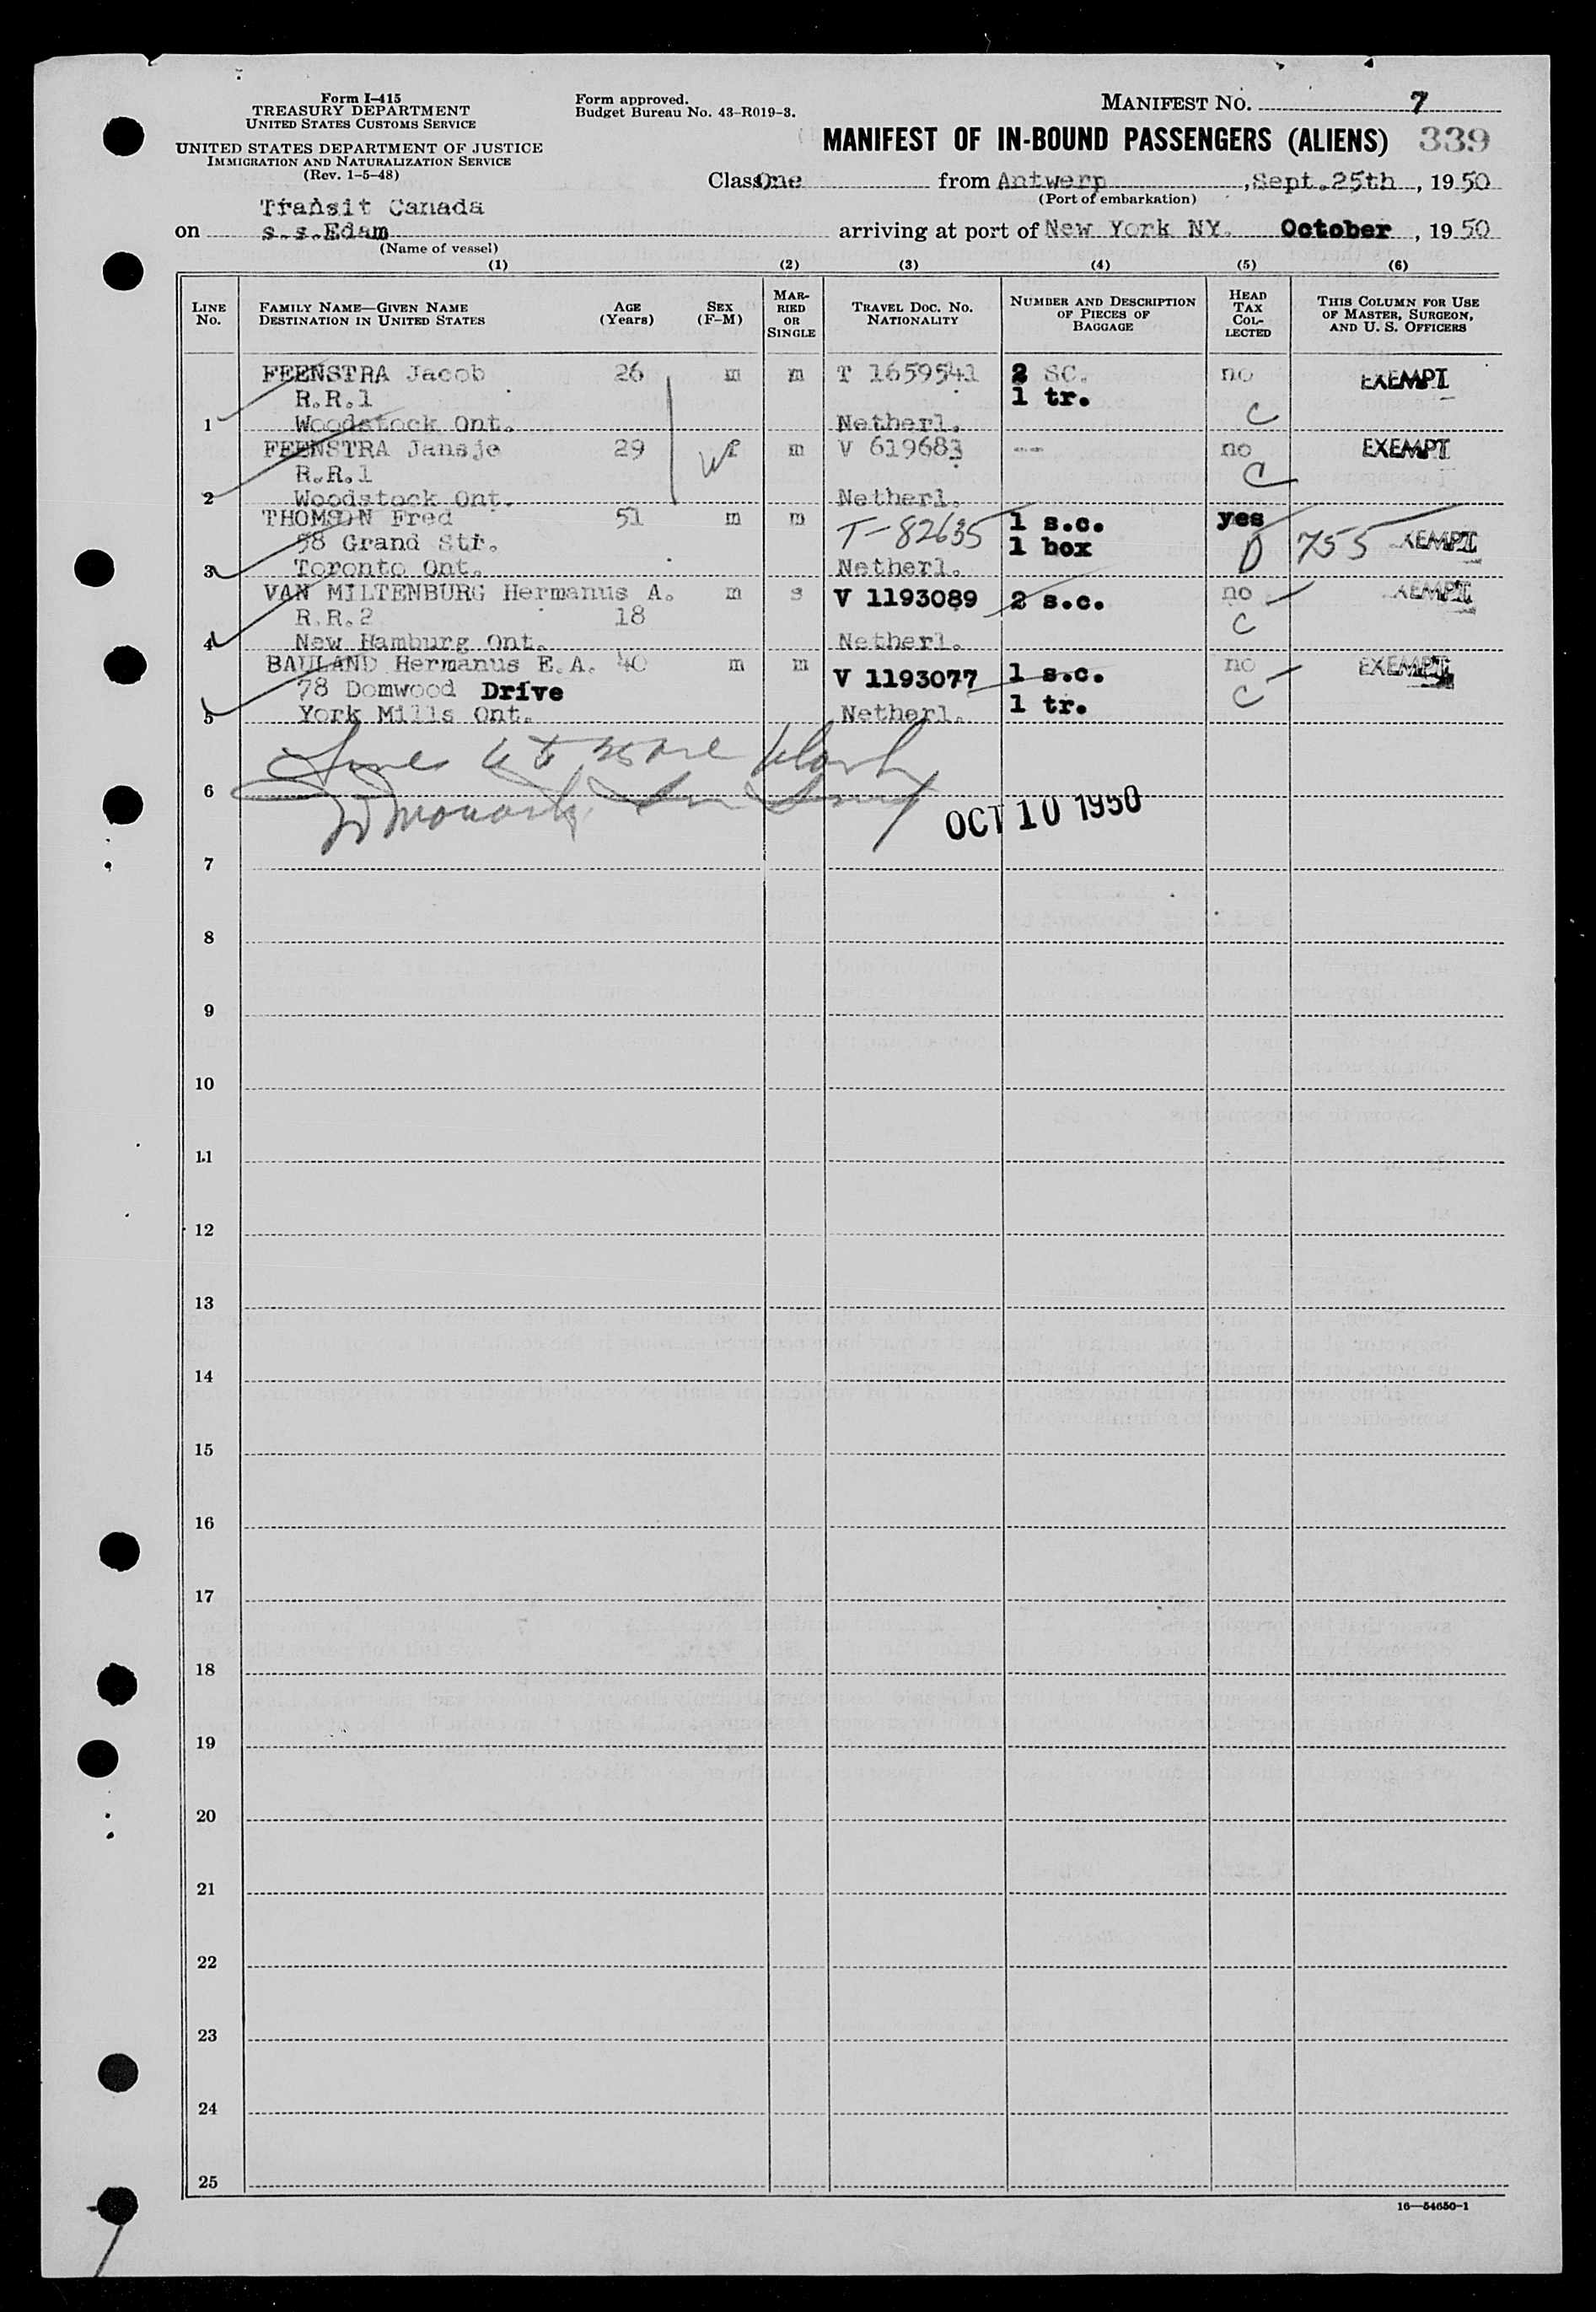 Form I-415
TREASURY DEPARTMENT
UNITED STATES CUSTOMS SERVICE
UNITED STATES DEPARTMENT OF JUSTICE
IMMIGRATION AND NATURALIZATION SERVICE
(Rev. 1-5-48)
Form approved.
Budget Bureau No. 43-R019-3.
MANIFEST NO. 7
MANIFEST OF IN-BOUND PASSENGERS (ALIENS) 339
Class One from Antwerp, Sept.25th, 1950
(Port of embarkation)
Transit Canada
on s.s.Edam arriving at port of New York NY. October, 1950
(Name of vessel)
(1) (2) (3) (4) (5) (6)
LINE No. FAMILY NAME—GIVEN NAME DESTINATION IN UNITED STATES AGE (Years) SEX (F-M) MARRIED OR SINGLE TRAVEL DOC. NO. NATIONALITY NUMBER AND DESCRIPTION OF PIECES OF BAGGAGE HEAD TAX COLLECTED THIS COLUMN FOR USE OF MASTER, SURGEON, AND U. S. OFFICERS
FEENSTRA Jacob 26 m m T 1659541 2 SC. no EXEMPT
R.R.1 1 tr.
1 Woodstock Ont. Netherl. C
FEENSTRA Jansje 29 f m V 619683 -- no EXEMPT
R.R.1 C
2 Woodstock Ont. Netherl.
THOMSON Fred 51 m m T-82635 1 s.c. yes
58 Grand Str. 1 box D 755 EXEMPT
3 Toronto Ont. Netherl.
VAN MILTENBURG Hermanus A. m s V 1193089 2 s.c. no EXEMPT
R.R.2 18 C
4 New Hamburg Ont. Netherl.
BAULAND Hermanus E.A. 40 m m V 1193077 1 s.c. no EXEMPT
78 Domwood Drive C
5 York Mills Ont. Netherl. 1 tr.
Lines 6 to 25 are blank
6
OCT 10 1950
7
8
9
10
11
12
13
14
15
16
17
18
19
20
21
22
23
24
25
16—54650-1